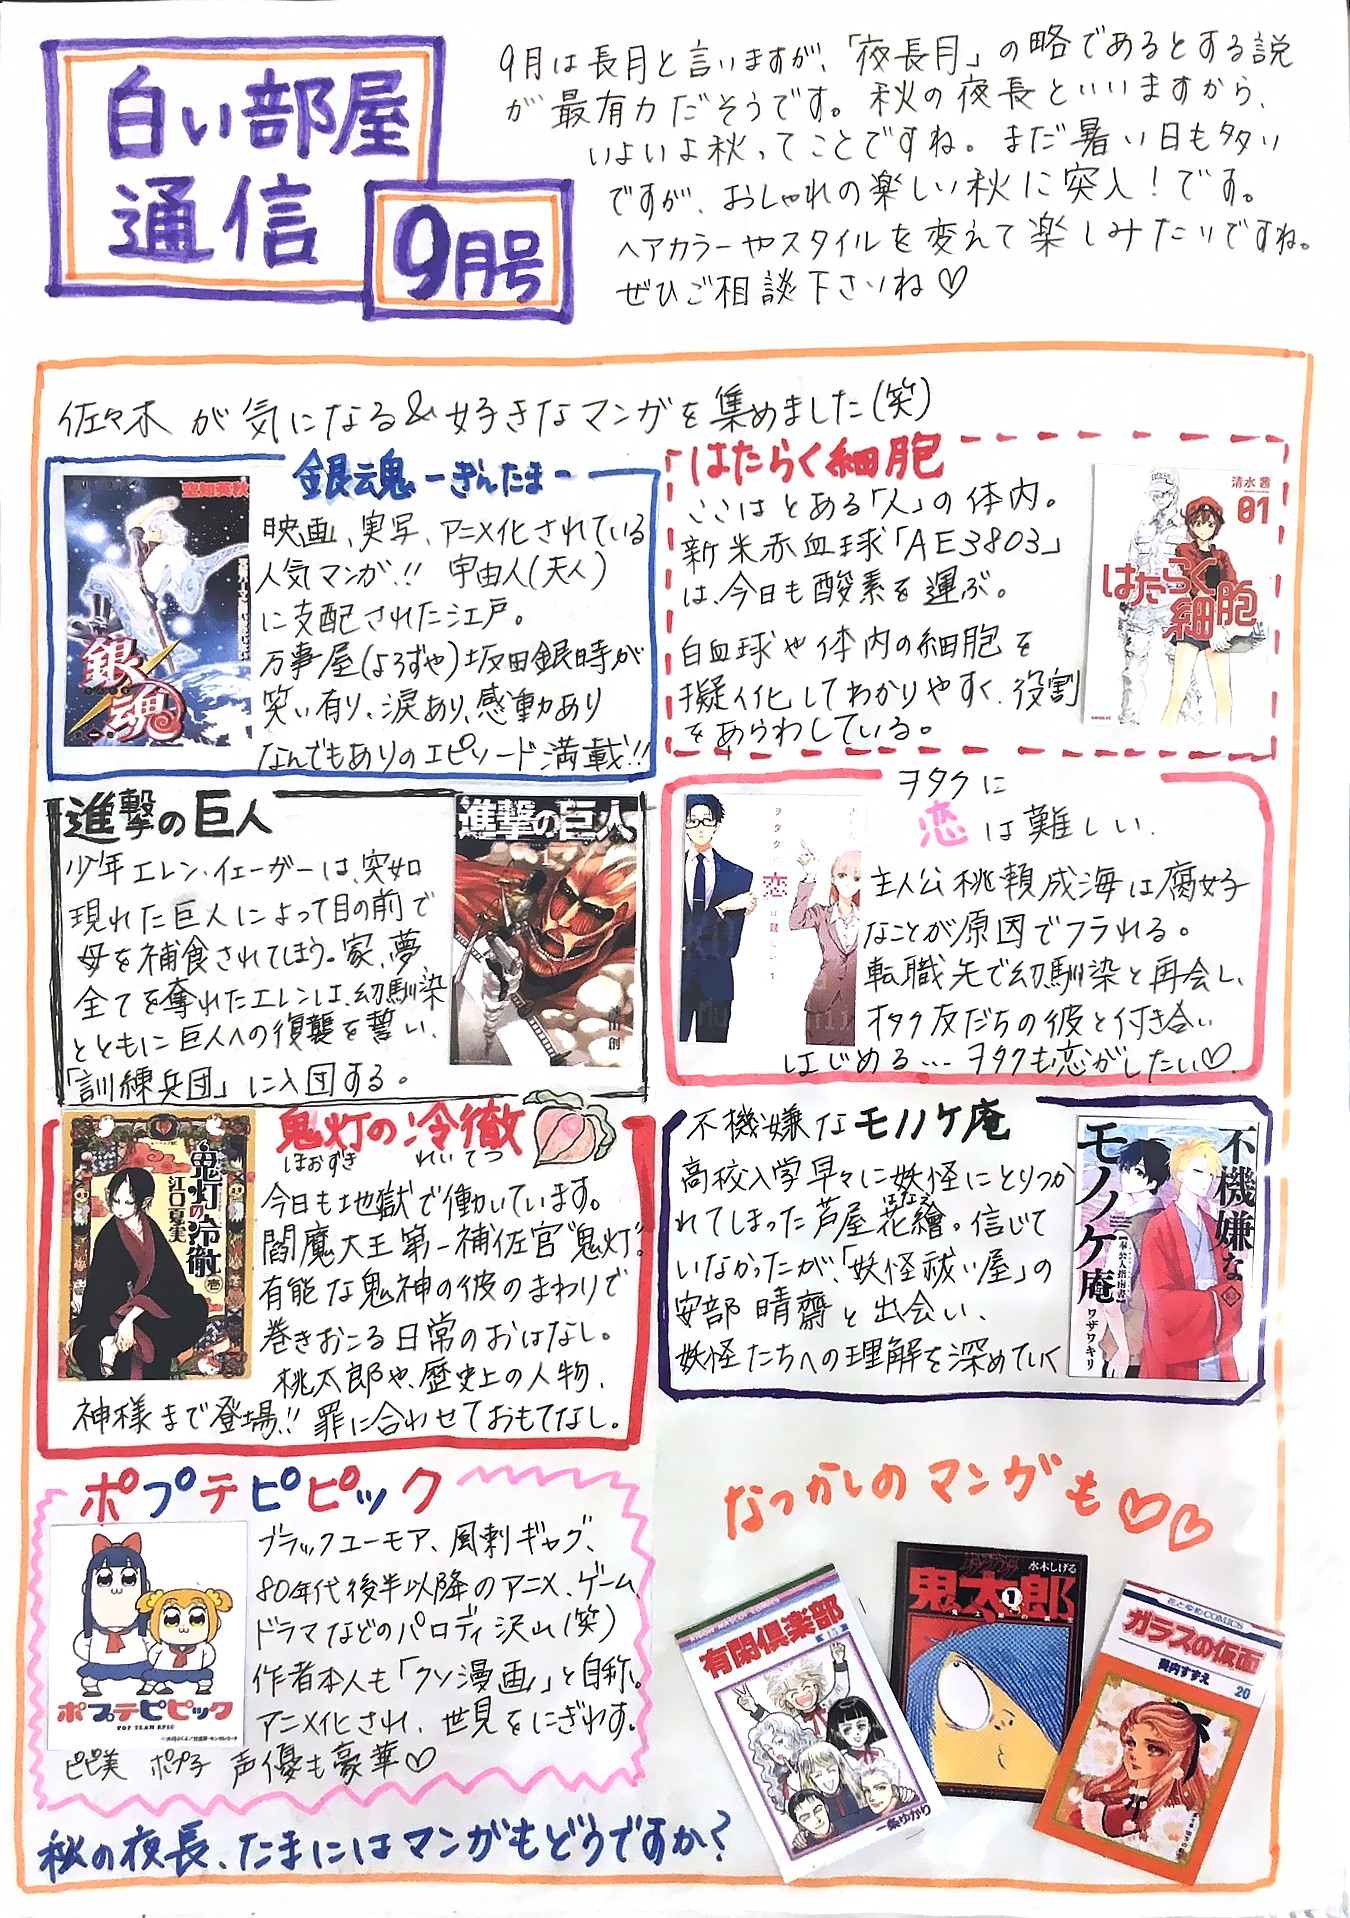 白い部屋
通信
9月号
9月は長月と言いますが、「夜長月」の略であるとする説
が最有力だそうです。秋の夜長といいますから、
いよいよ秋ってことですね。まだ暑い日も多い
ですが、おしゃれの楽しい秋に突入！です。
ヘアカラーやスタイルを変えて楽しみたいですね。
ぜひご相談下さいね♡
佐々木が気になる&好きなマンガを集めました(笑)
銀魂ーぎんたまー
空知英秋
銀魂
映画、実写、アニメ化されている
人気マンガ!! 宇宙人(天人)
に支配された江戸。
万事屋(よろずや)坂田銀時が
笑い有り、涙あり、感動あり
なんでもありのエピソード満載!!
はたらく細胞
ここはとある「人」の体内。
新米赤血球「AE3803」
は、今日も酸素を運ぶ。
白血球や体内の細胞を
擬人化してわかりやすく、役割
をあらわしている。
清水茜
01
はたらく
細胞
進撃の巨人
少年エレン・イェーガーは、突如
現れた巨人によって目の前で
母を補食されてしまう。家、夢、
全てを奪れたエレンは、幼馴染
とともに巨人への復讐を誓い、
「訓練兵団」に入団する。
進撃の巨人
1
諫山創
ヲタクに
恋は難しい.
ヲタクに恋は難しい 1
主人公桃瀬成海は腐女子
なことが原因でフラれる。
転職先で幼馴染と再会し、
オタク友だちの彼と付き合い
はじめる… ヲタクも恋がしたい♡
鬼灯の冷徹
ほおずき れいてつ
鬼灯の冷徹
壱
江口夏実
今日も地獄で働いています。
閻魔大王第一補佐官“鬼灯”。
有能な鬼神の彼のまわりで
巻きおこる日常のおはなし。
桃太郎や、歴史上の人物、
神様まで登場!! 罪に合わせておもてなし。
不機嫌なモノノケ庵
高校入学早々に妖怪にとりつか
れてしまった芦屋花繪。信じて
はなえ
いなかったが、「妖怪祓い屋」の
安部晴齋と出会い、
妖怪たちへの理解を深めていく
不機嫌な
モノノケ庵
【奉公人指南書】
ワザワキリ
ポプテピピック
ブラックユーモア、風刺ギャグ、
80年代後半以降のアニメ、ゲーム、
ドラマなどのパロディ沢山(笑)
作者本人も「クソ漫画」と自称。
アニメ化され、世見をにぎわす。
ピピ美 ポプ子 声優も豪華♡
ポプテピピック
POP TEAM EPIC
なつかしのマンガも♡♡
有閑倶楽部
一条ゆかり
水木しげる
鬼太郎
1
花とゆめCOMICS
ガラスの仮面
美内すずえ
20
秋の夜長、たまにはマンガもどうですか？